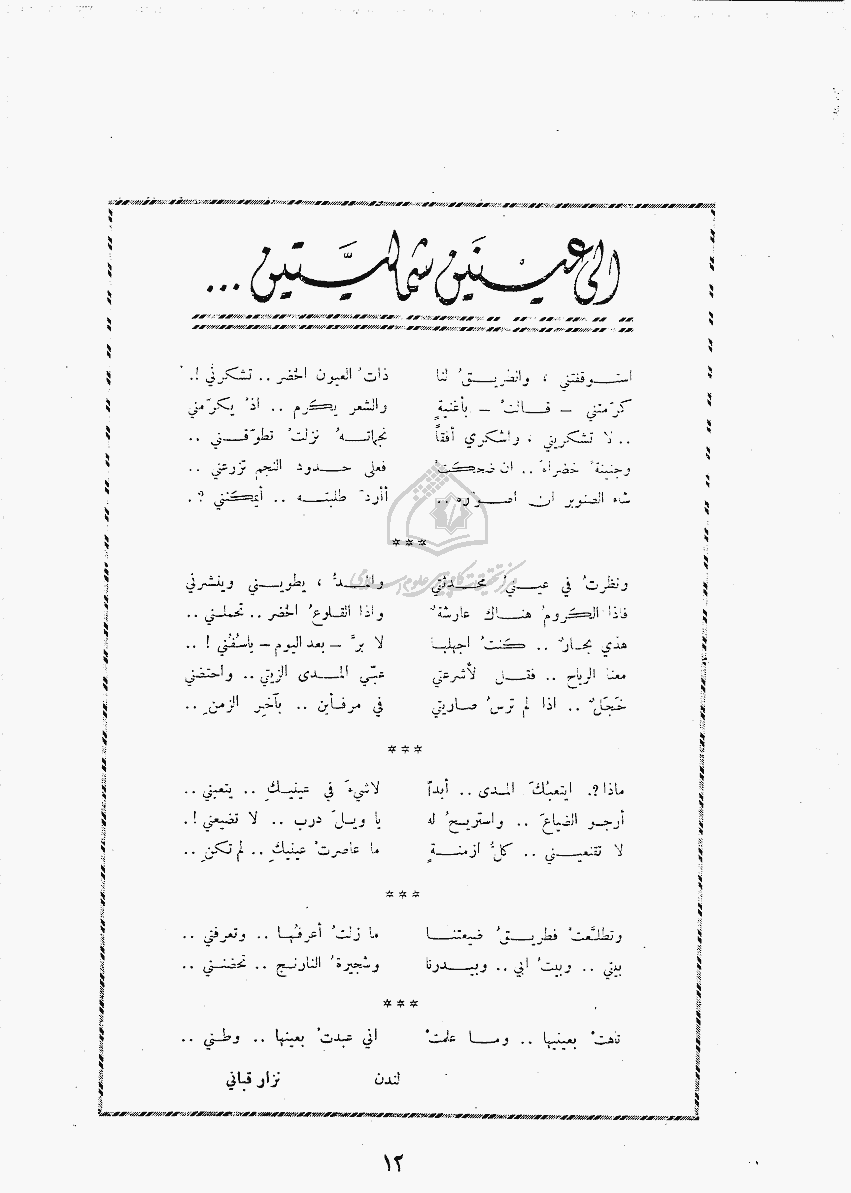 الى عينين شماليّتين ...
استوقفتني ، والطريقُ لنا ذاتُ العيون الخضر .. تشكرني !.
كرّمتني – قالتْ – بأغنيةٍ والشعر يكرم .. اذْ يكرّمني
.. لا تشكريني ، واشكري أفقاً نجماتهُ نزلتْ تطوّقني ..
وجنينةً خضراءَ .. ان ضحكتْ فعلى حدود النجم تزرعني ..
شاء الصنوبر ان اصوّره .. أأردّ طلبته .. أيمكنني ؟.
***
ونظرتُ في عينيْ محدثتي والمدُّ ، يطويني وينشرني
فاذا الكرومُ هناك عارشةٌ واذا القلوعُ الخضر .. تحملني ..
هذي بحارٌ .. كنتُ اجهلها لا برَّ – بعد اليوم – ياسُفُني ! ..
معنا الرياح .. فقل لأشرعتي عبّي المدى الزيتي .. واحتضني
خَجَلٌ .. اذا لم ترسُ صاريتي في مرفأين .. بآخِرِ الزمنِ ..
***
ماذا ؟. ايتعبُكَ المدى .. أبداً لاشيءَ في عينيكِ .. يتعبني ..
أرجو الضياعَ .. واستريحُ له يا ويلَ درب .. لا تضيعني !.
لا تقنعيني .. كلُّ ازمنةٍ ما عاصرتْ عينيكِ .. لم تكنِ ..
***
وتطلَّعتْ فطريقُ ضيعتنا ما زلتُ أعرفُها .. وتعرفني ..
بيتي .. وبيتُ ابي .. وبيدرنا وشجيرةُ النارنج .. تحضنني ..
***
تاهتْ بعينيها .. وما علمتْ اني عبدتُ بعينها .. وطني ..
لندن نزار قباني
١٢